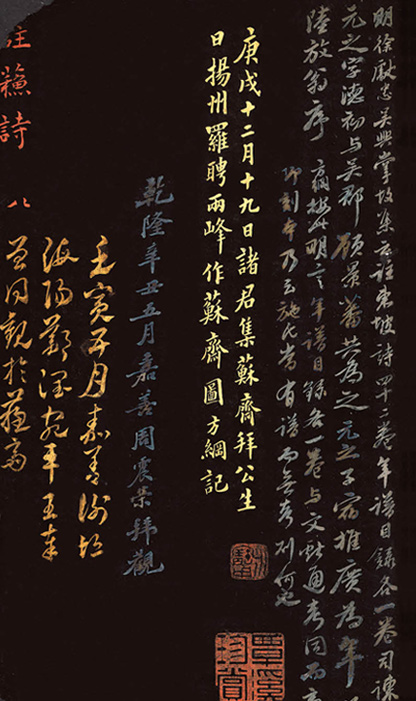 明徐獻忠吳興掌故集云註東坡詩四十二卷年譜目錄各一卷司諫
元之字德初与吳郡顧景蕃共為之元之子宿推廣為年
陸放翁序 按此明言年譜目錄各一卷与文獻通考同而
邵刻本乃云施氏當有譜而無考何也
庚戌十二月十九日諸君集蘇齋拜公生
日揚州羅聘兩峰作蘇齋圖方綱記
乾隆辛丑五月嘉善周震榮拜觀
壬寅五月嘉善謝墉
海陽鄭 宛平王奉
曾同觀於蘇齋
註蘇詩 八